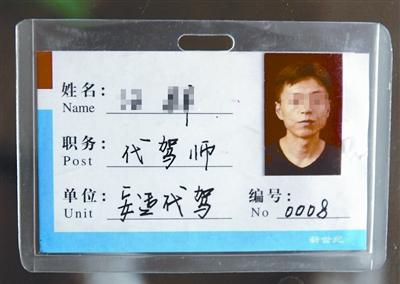 姓名：
Name
职务：代驾师
Post
单位：安适代驾 编号：
Unit No 0008
新世纪